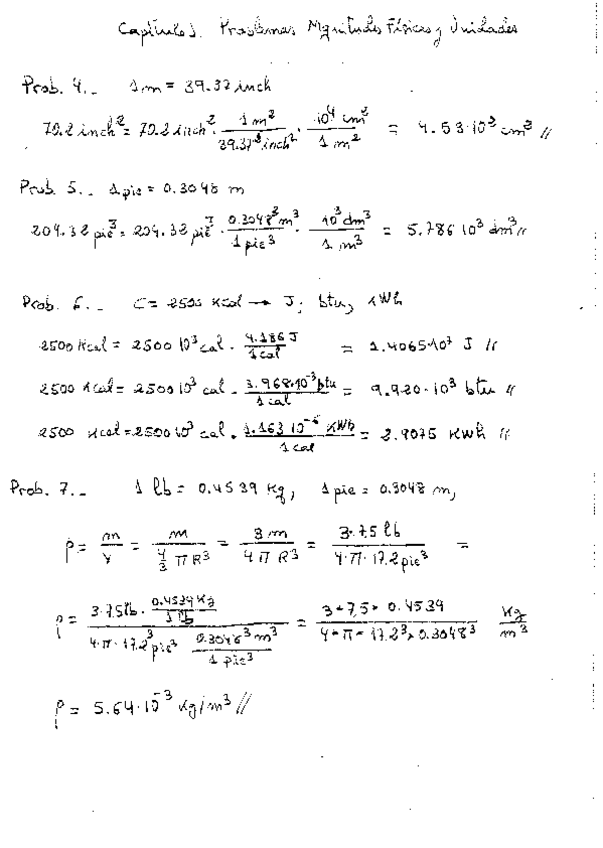 Capítulo 1. Problemas Magnitudes Físicas y Unidades
Prob. 4.- 1m = 39.37 inch
70.2 inch² = 70.2 inch² · 1 m² / 39.37² inch² · 10⁴ cm² / 1 m² = 4.53·10³ cm² //
Prob. 5.- 1 pie = 0.3048 m
204.32 pie³ = 204.32 pie³ · 0.3048³ m³ / 1 pie³ · 10³ dm³ / 1 m³ = 5.786 10³ dm³ //
Prob. 6.- C = 2500 Kcal → J; btu, KWh
2500 Kcal = 2500 10³ cal · 4.186 J / 1 cal = 1.4065·10⁷ J //
2500 Kcal = 2500 10³ cal · 3.968·10⁻³ btu / 1 cal = 9.920·10³ btu //
2500 Kcal = 2500 10³ cal · 1.163 10⁻⁶ KWh / 1 cal = 2.9075 KWh //
Prob. 7.- 1 lb = 0.4539 Kg, 1 pie = 0.3048 m,
ρ = m / V = m / 4/3 π R³ = 3 m / 4 π R³ = 3·7.5 lb / 4·π·17.2 pie³ =
ρ = 3·7.5 lb · 0.4539 Kg / 1 lb / 4·π·17.2³ pie³ 0.3048³ m³ / 1 pie³ = 3*7,5*0.4539 / 4*π*17.2³*0.3048³ Kg / m³
ρ = 5.64·10⁻³ Kg/m³ //